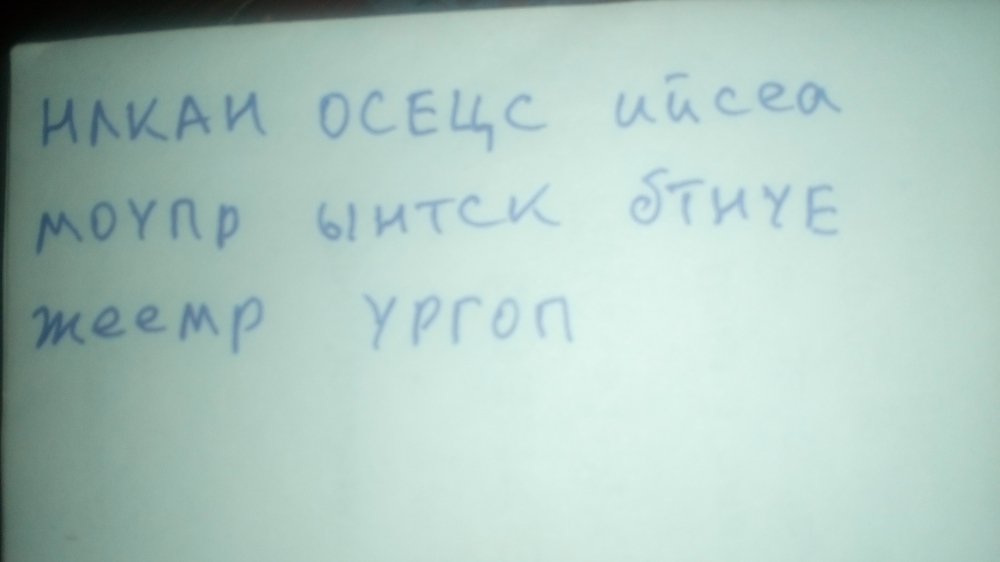 НЛКАИ ОСЕЦС ийсеа
МОУПР ЫНТСК БТНУЕ
жеемр УРГОП